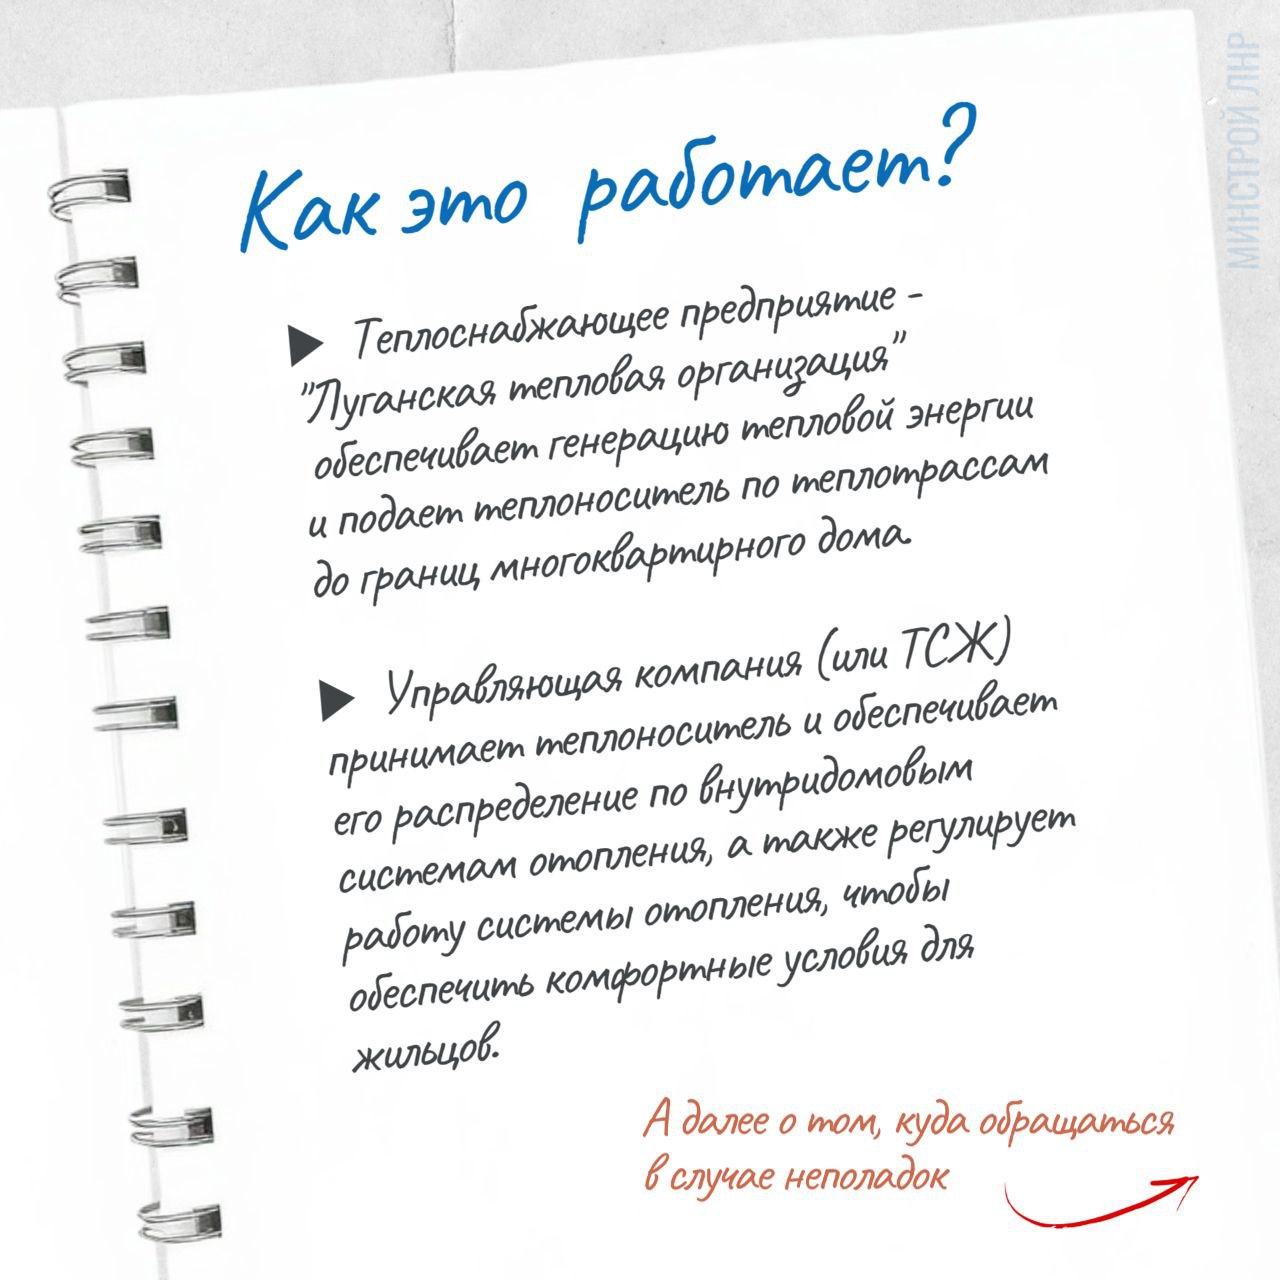 МИНСТРОЙ ЛНР
Как это работает?
▶ Теплоснабжающее предприятие -
"Луганская тепловая организация"
обеспечивает генерацию тепловой энергии
и подает теплоноситель по теплотрассам
до границ многоквартирного дома.
▶ Управляющая компания (или ТСЖ)
принимает теплоноситель и обеспечивает
его распределение по внутридомовым
системам отопления, а также регулирует
работу системы отопления, чтобы
обеспечить комфортные условия для
жильцов.
А далее о том, куда обращаться
в случае неполадок